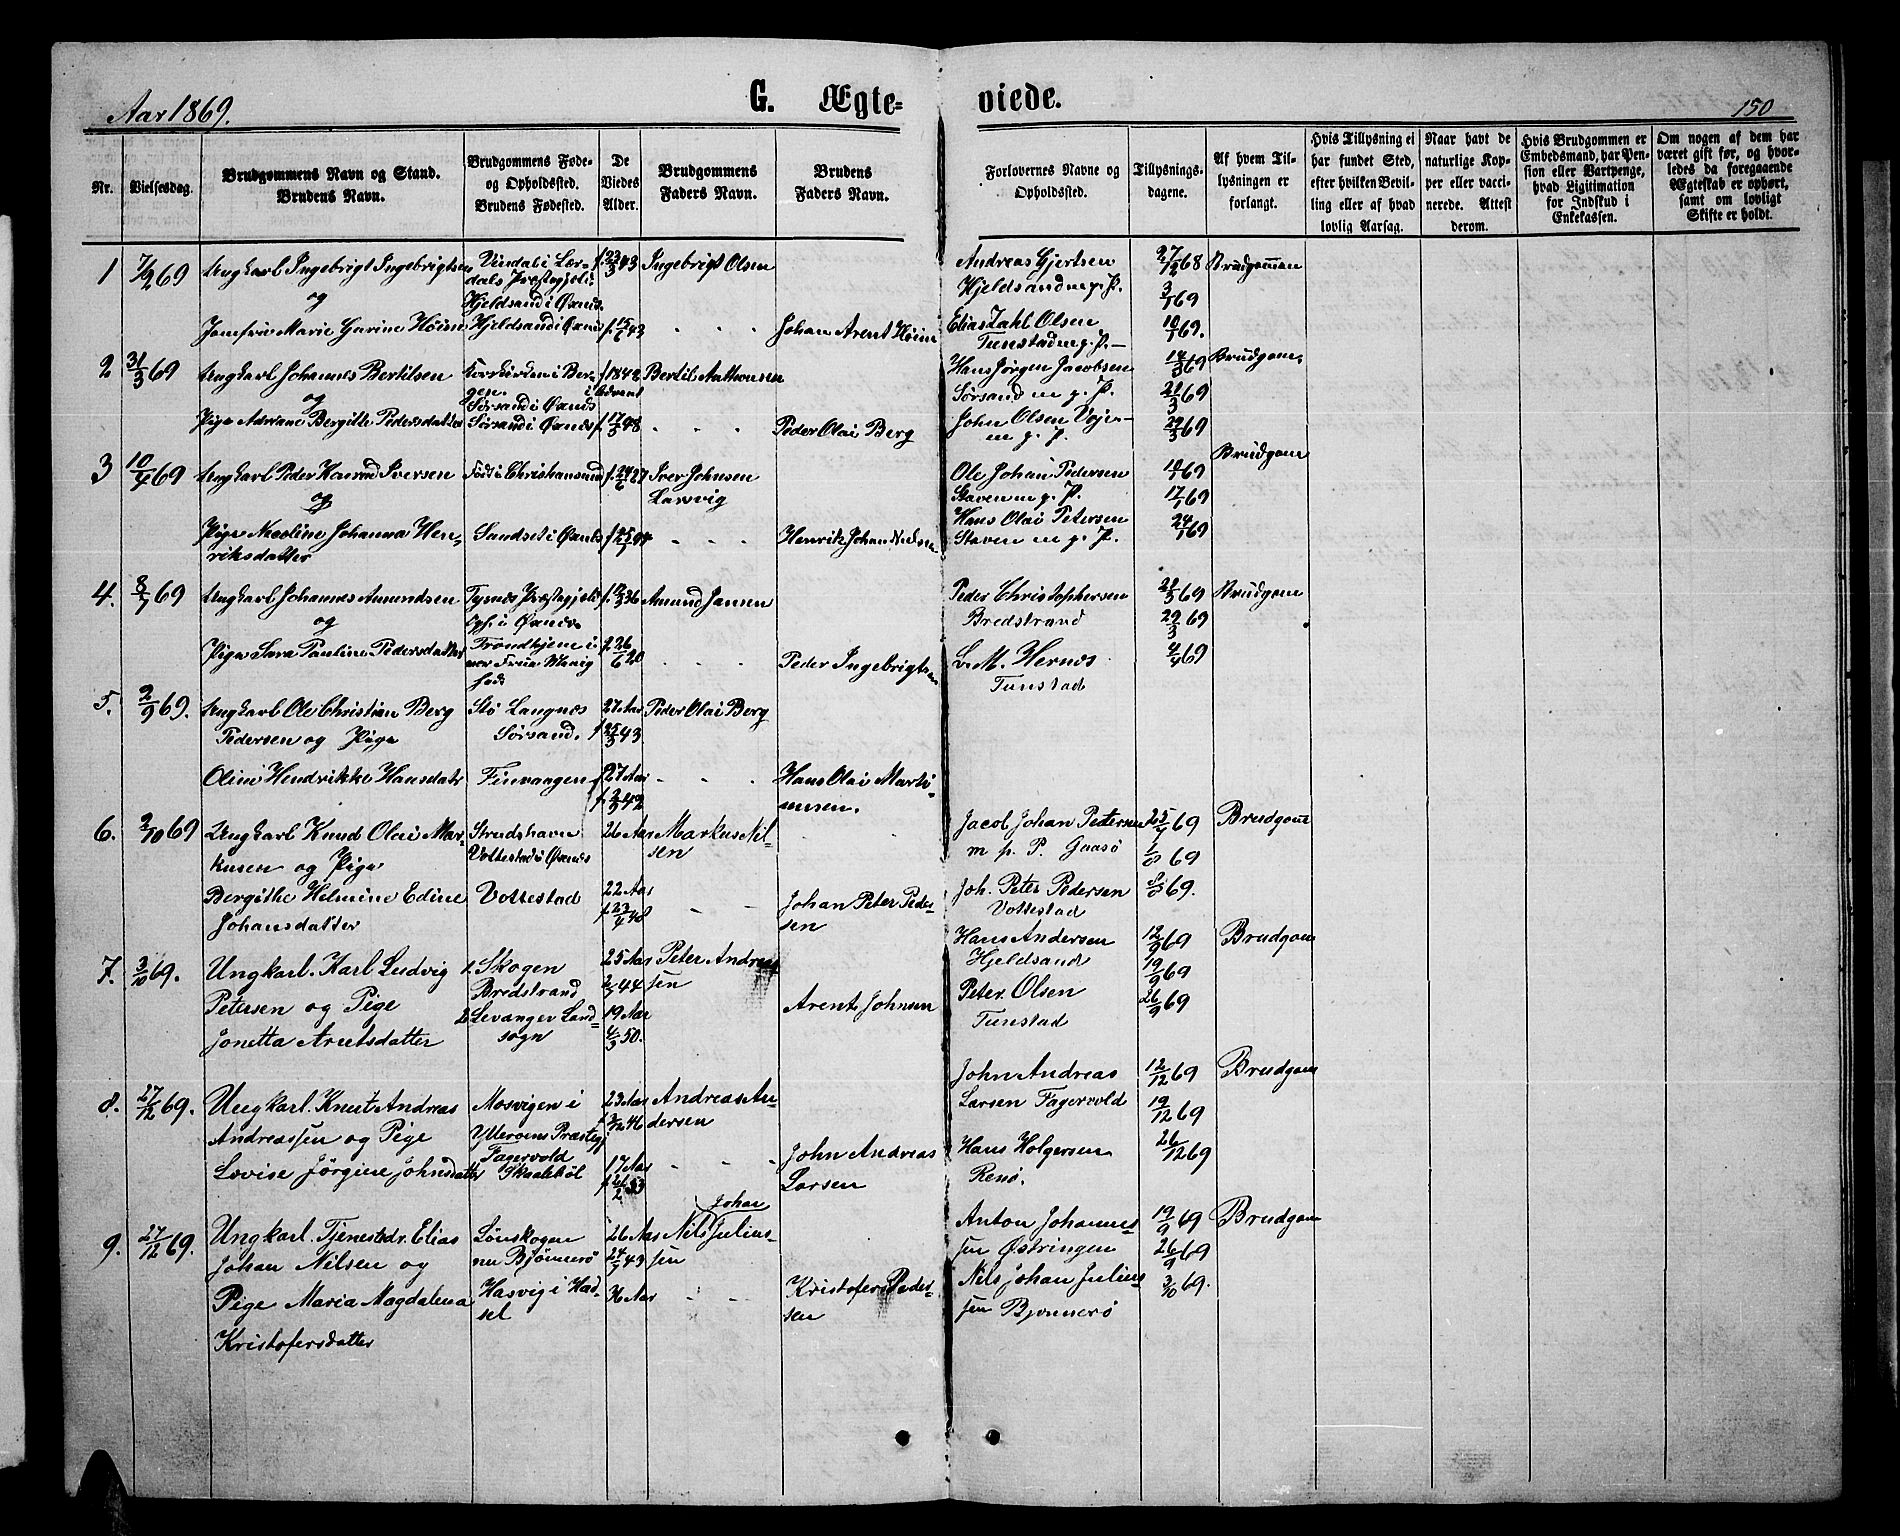 Aar 1869.
G. Ægte=
viede.
150
Nr.
Vielsesdag.
Brudgommens Navn og Stand.
Brudens Navn.
Brudgommens Føde-
og Opholdssted.
Brudens Fødested.
De
Viedes
Alder.
Brudgommens
Faders Navn.
Brudens
Faders Navn.
Forlovernes Navne og
Opholdssted.
Tillysnings-
dagene.
Af hvem Til-
lysningen er
forlangt.
Hvis Tillysning ei
har fundet Sted,
efter hvilken Bevil-
ling eller af hvad
lovlig Aarsag.
Naar havt de
naturlige Kop-
per eller vacci-
nerede. Attest
derom.
Hvis Brudgommen er
Embedsmand, har Pen-
sion eller Vartpenge,
hvad Ligitimation
for Indskud i
Enkekassen.
Om nogen af dem har
været gift før, og hvor-
ledes da foregaaende
Ægteskab er ophørt,
samt om lovligt
Skifte er holdt.
1 7/2 69 Ungkarl Ingebrigt Ingebrigtsen
og
Jomfru Marie Garine Høim
Vindal i Lær-
dals Præstegjeld.
Hjeldsand i Øxnes
Hjeldsand i Øxnes
f. 23/3 43
f. 15/6 43
Ingebrigt Olsen
Johan Arent Høim
Andreas Gjertsen
Hjeldsand m. p. P.
Elias Dahl Olsen
Tunstad m. p. P.
27/12 68
3/1 69
10/1 69.
Brudgommen
2 31/3 69 Ungkarl Johannes Bertilsen
og
Pige Adriane Bergitte Pedersdatter
Korskirken i Ber-
gen.
Sørsand i Øxnes
Sørsand i Øxnes
f. 1842
i Advent
f. 17/3 48
Bertil Anthonsen
Peder Olai Berg
Hans Jørgen Jacobsen
Sørsand m. p. P.
John Olsen
m. p. P.
14/3 69
21/3 69
29/3 69
Brudgom
3 10/4 69 Ungkarl Peder Konrad Iversen
og
Pige Nicoline Johanna Hen-
riksdatter
Født i Christiansund
Sandset i Øxnes
f. 24/6 27
Iver Johnsen
Larsvig
Henrik Johan Nielsen
Ole Johan Pedersen
Staven m. p. P.
Hans Olai Petersen
Staven m. p. P.
10/1 69
17/1 69
24/1 69
Brudgom
4. 8/7 69 Ungkarl Johannes Amundsen
og
Pige Sara Pauline Pedersdatter
Tysnes Præstegjeld
Oph. i Øxnes
Trondhjem i
vor Frue Menig-
hed
f. 19/3 36
f. 26/6 20
Amund Jansen
Peder Ingebrigtsen
Peder Christophersen
Bredstrand
L. M. Hernes
Tunstad
21/3 69
29/3 69
4/4 69
Brudgom
5. 2/9 69. Ungkarl Ole Christian Berg
Pedersen og Pige
Oline Hendrikke Hansdatr
Stø Langnes
Sørsand.
Finvaagen
27 Aar
f. 25/3 43
27 Aar
f. 2/9 42
Peder Olai Berg
Hans Olai Marti-
nusen.
6. 2/10 69 Ungkarl Knud Olai Mar-
kusen og Pige
Bergithe Helmine Edine
Johansdatter
Strudshavn
Vottestad i Øxnes
Vottestad
26 Aar
22 Aar
f. 23/4 48
Markus Nil-
sen
Johan Peter Peder-
sen
Jacob Johan Petersen
m p. P. Gaasø
Joh. Peter Pedersen
Vottestad
25/7 69
1/8 69
8/8 69.
Brudgom
7. 3/10 69. Ungkarl. Karl Ludvig
Petersen og Pige
Jonetta Arntsdatter
1. Skogen
Bredstrand
2. Levanger Land-
sogn
25 Aar
2/7 44
19 Aar
4/9 50.
Peter Andrea-
sen
Arent Johnsen
Hans Andersen
Hjeldsand
Peter. Olsen
Tunstad
12/9 69
19/9 69
26/9 69
Brudgom
8. 27/12 69. Ungkarl. Knut Andreas
Andreassen og Pige
Lovise Jørgine Johnsdatter
Mosvigen i
Ytterøens Præstegj
Fagervold
Skaalebøl
23 Aar
f. 3/12 46
17 Aar
f. 21/2 53
Andreas An-
dersen
John Andreas
Larsen
John Andreas
Larsen Fagervold
Hans Holgersen
Renø.
12/12 69
19/12 69
26/12 69
Brudgom
9. 27/12 69. Ungkarl. Tjenestedr. Elias
Johan Nilsen og
Pige Maria Magdalena
Kristofersdatter
Lønskogen
nu Bjørnerø
Hasvig i Had-
sel
26 Aar
24/7 43
36 Aar
Johan
Nils Julius-
sen
Kristofer Peder-
sen
Anton Johannes-
sen Østringen
Nils Johan Julius-
sen Bjørnerø
19/9 69
26/9 69
3/10 69.
Brudgom